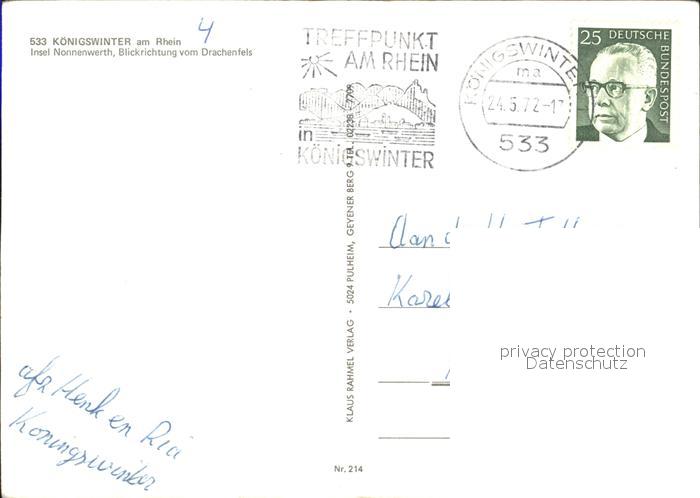 533 KÖNIGSWINTER am Rhein
Insel Nonnenwerth, Blickrichtung vom Drachenfels
4
TREFFPUNKT
AM RHEIN
in
KÖNIGSWINTER
KÖNIGSWINTER
ma
24.5.72-1
533
25 DEUTSCHE
BUNDESPOST
KLAUS RAHMEL VERLAG • 5024 PULHEIM, GEYENER BERG 9 TEL. 02238-7709
Aan
privacy protection
Datenschutz
afz Henk en Ria
Koningswinter
Nr. 214